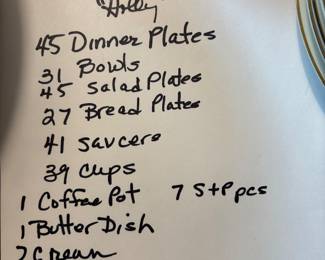 "Holly"
45 Dinner Plates
31 Bowls
45 Salad Plates
27 Bread Plates
41 Saucers
39 Cups
1 Coffee Pot 7 S+P pcs
1 Butter Dish
2 Cream